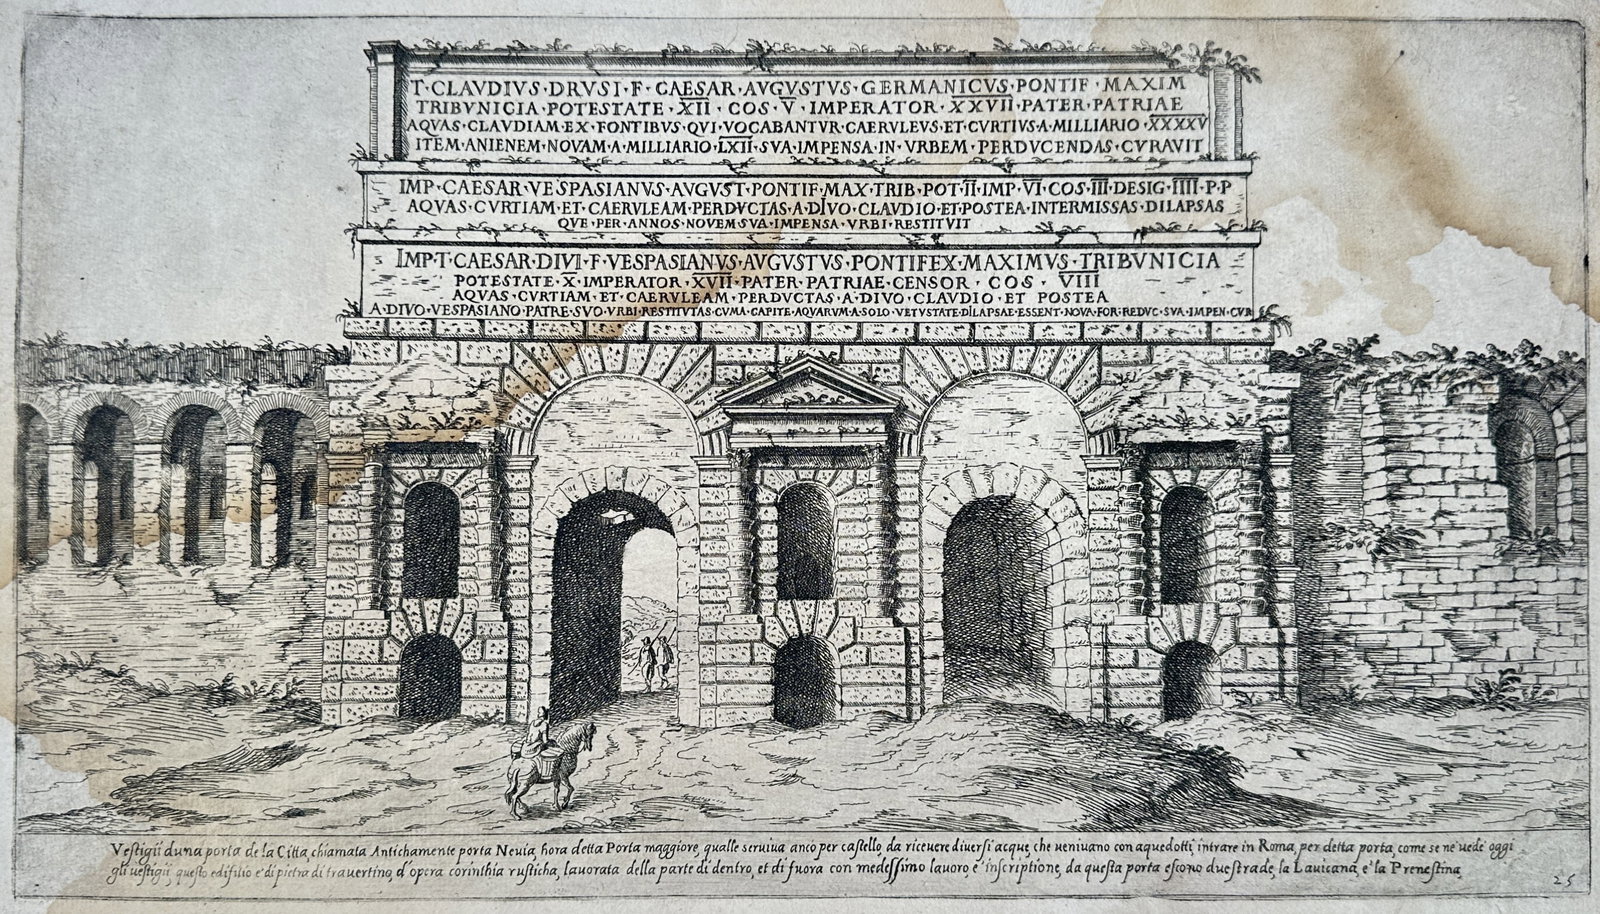 T·CLAVDIVS·DRVSI·F·CAESAR·AVGVSTVS·GERMANICVS·PONTIF·MAXIM
TRIBVNICIA·POTESTATE·XII·COS·V·IMPERATOR·XXVII·PATER·PATRIAE
AQVAS·CLAVDIAM·EX·FONTIBVS·QVI·VOCABANTVR·CAERVLEVS·ET·CVRTIVS·A·MILLIARIO·XXXXV
ITEM·ANIENEM·NOVAM·A·MILLIARIO·LXII·SVA·IMPENSA·IN·VRBEM·PERDVCENDAS·CVRAVIT
IMP·CAESAR·VESPASIANVS·AVGVST·PONTIF·MAX·TRIB·POT·II·IMP·VI·COS·III·DESIG·IIII·P·P
AQVAS·CVRTIAM·ET·CAERVLEAM·PERDVCTAS·A·DIVO·CLAVDIO·ET·POSTEA·INTERMISSAS·DILAPSAS
QVE·PER·ANNOS·NOVEM·SVA·IMPENSA·VRBI·RESTITVIT
IMP·T·CAESAR·DIVI·F·VESPASIANVS·AVGVSTVS·PONTIFEX·MAXIMVS·TRIBVNICIA
POTESTATE·X·IMPERATOR·XVII·PATER·PATRIAE·CENSOR·COS·VIII
AQVAS·CVRTIAM·ET·CAERVLEAM·PERDVCTAS·A·DIVO·CLAVDIO·ET·POSTEA
A·DIVO·VESPASIANO·PATRE·SVO·VRBI·RESTITVTAS·CVMA·CAPITE·AQVARVM·A·SOLO·VETVSTATE·DILAPSAE·ESSENT·NOVA·FOR·REDVC·SVA·IMPEN·CVR
Vestigii duna porta de la Citta, chiamata Antichamente porta Nevia, hora detta Porta maggiore, qualle serviua anco per castello, da riceuere diversi acque, che venivano con aquedotti intrare in Roma, per detta porta, come se ne vede oggi
gli vestigii, questo edifilio e' di pietra di travertino, d'opera corinthia rusticha, lauorata della parte di dentro, et di fuora con medessimo lauoro, e inscriptione, da questa porta escono due strade, la Lauicana, e la Prenestina,
25